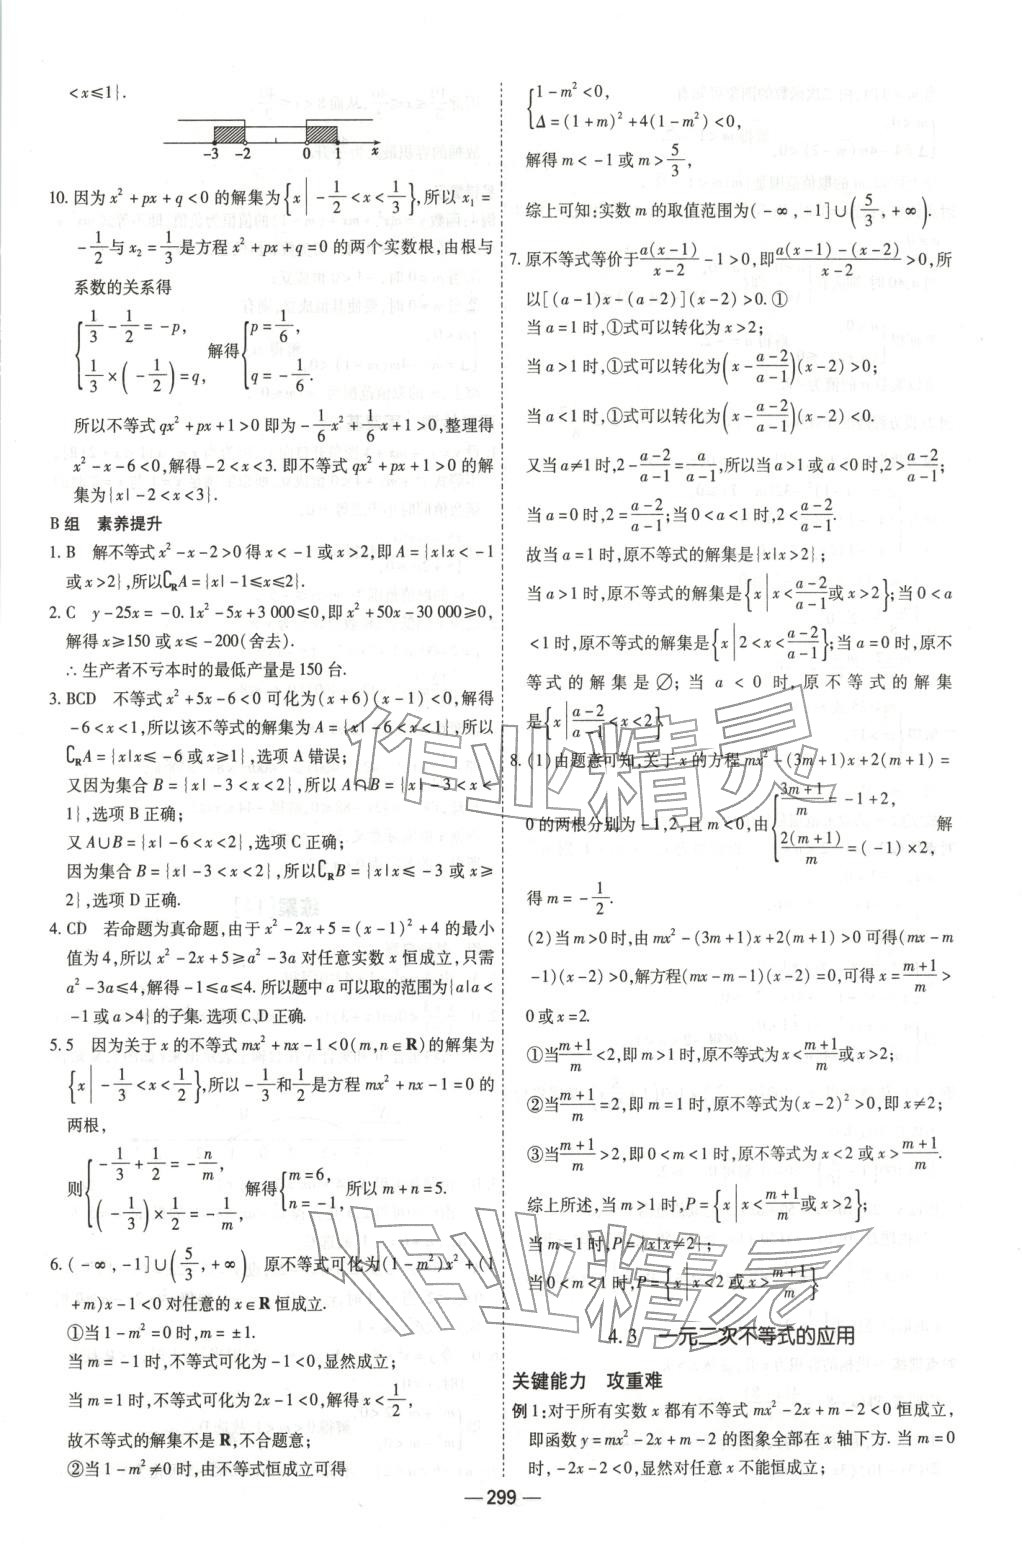 <x≤1}.
-3 -2 0 1 x
10. 因为 x²+px+q<0 的解集为{x|-1/2<x<1/3},所以 x₁=
-1/2与 x₂=1/3是方程 x²+px+q=0 的两个实数根,由根与
系数的关系得
{1/3-1/2=-p, 1/3×(-1/2)=q, 解得{p=1/6, q=-1/6.
所以不等式 qx²+px+1>0 即为-1/6x²+1/6x+1>0,整理得
x²-x-6<0,解得-2<x<3. 即不等式 qx²+px+1>0 的解
集为{x|-2<x<3}.
B 组 素养提升
1. B 解不等式 x²-x-2>0 得 x<-1 或 x>2,即 A={x|x<-1
或 x>2},所以∁RA={x|-1≤x≤2}.
2. C y-25x=-0.1x²-5x+3 000≤0,即 x²+50x-30 000≥0,
解得 x≥150 或 x≤-200(舍去).
∴ 生产者不亏本时的最低产量是 150 台.
3. BCD 不等式 x²+5x-6<0 可化为(x+6)(x-1)<0,解得
-6<x<1,所以该不等式的解集为 A={x|-6<x<1},所以
∁RA={x|x≤-6 或 x≥1},选项 A 错误;
又因为集合 B={x|-3<x<2},所以 A∩B={x|-3<x<
1},选项 B 正确;
又 A∪B={x|-6<x<2},选项 C 正确;
因为集合 B={x|-3<x<2},所以∁RB={x|x≤-3 或 x≥
2},选项 D 正确.
4. CD 若命题为真命题,由于 x²-2x+5=(x-1)²+4 的最小
值为 4,所以 x²-2x+5≥a²-3a 对任意实数 x 恒成立,只需
a²-3a≤4,解得-1≤a≤4. 所以题中 a 可以取的范围为{a|a<
-1 或 a>4}的子集. 选项 C、D 正确.
5. 5 因为关于 x 的不等式 mx²+nx-1<0(m,n∈R)的解集为
{x|-1/3<x<1/2},所以-1/3和1/2是方程 mx²+nx-1=0 的
两根,
则{-1/3+1/2=-n/m, (-1/3)×1/2=-1/m, 解得{m=6, n=-1, 所以 m+n=5.
6. (-∞,-1]∪(5/3,+∞) 原不等式可化为(1-m²)x²+(1
+m)x-1<0 对任意的 x∈R 恒成立.
①当 1-m²=0 时,m=±1.
当 m=-1 时,不等式可化为-1<0,显然成立;
当 m=1 时,不等式可化为 2x-1<0,解得 x<1/2,
故不等式的解集不是 R,不合题意;
②当 1-m²≠0 时,由不等式恒成立可得
{1-m²<0, Δ=(1+m)²+4(1-m²)<0,
解得 m<-1 或 m>5/3,
综上可知:实数 m 的取值范围为(-∞,-1]∪(5/3,+∞).
7. 原不等式等价于a(x-1)/(x-2)-1>0,即a(x-1)-(x-2)/(x-2)>0,所
以[(a-1)x-(a-2)](x-2)>0.①
当 a=1 时,①式可以转化为 x>2;
当 a>1 时,①式可以转化为(x-(a-2)/(a-1))(x-2)>0;
当 a<1 时,①式可以转化为(x-(a-2)/(a-1))(x-2)<0.
又当 a≠1 时,2-(a-2)/(a-1)=a/(a-1),所以当 a>1 或 a<0 时,2>(a-2)/(a-1);
当 a=0 时,2=(a-2)/(a-1);当 0<a<1 时,2<(a-2)/(a-1).
故当 a=1 时,原不等式的解集是{x|x>2};
当 a>1 时,原不等式的解集是{x|x<(a-2)/(a-1)或 x>2};当 0<a
<1 时,原不等式的解集是{x|2<x<(a-2)/(a-1)};当 a=0 时,原不
等式的解集是∅;当 a<0 时,原不等式的解集
是{x|(a-2)/(a-1)<x<2}.
8. (1)由题意可知,关于 x 的方程 mx²-(3m+1)x+2(m+1)=
0 的两根分别为-1,2,且 m<0,由{(3m+1)/m=-1+2, 2(m+1)/m=(-1)×2, 解
得 m=-1/2.
(2)当 m>0 时,由 mx²-(3m+1)x+2(m+1)>0 可得(mx-m
-1)(x-2)>0,解方程(mx-m-1)(x-2)=0,可得 x=(m+1)/m>
0 或 x=2.
①当(m+1)/m<2,即 m>1 时,原不等式为 x<(m+1)/m或 x>2;
②当(m+1)/m=2,即 m=1 时,原不等式为(x-2)²>0,即 x≠2;
③当(m+1)/m>2,即 0<m<1 时,原不等式为 x<2 或 x>(m+1)/m.
综上所述,当 m>1 时,P={x|x<(m+1)/m或 x>2};
当 m=1 时,P={x|x≠2};
当 0<m<1 时,P={x|x<2 或 x>(m+1)/m}.
4.3 一元二次不等式的应用
关键能力 攻重难
例 1:对于所有实数 x 都有不等式 mx²-2x+m-2<0 恒成立,
即函数 y=mx²-2x+m-2 的图象全部在 x 轴下方. 当 m=0
时,-2x-2<0,显然对任意 x 不能恒成立;
— 299 —
作业精灵
作业精灵